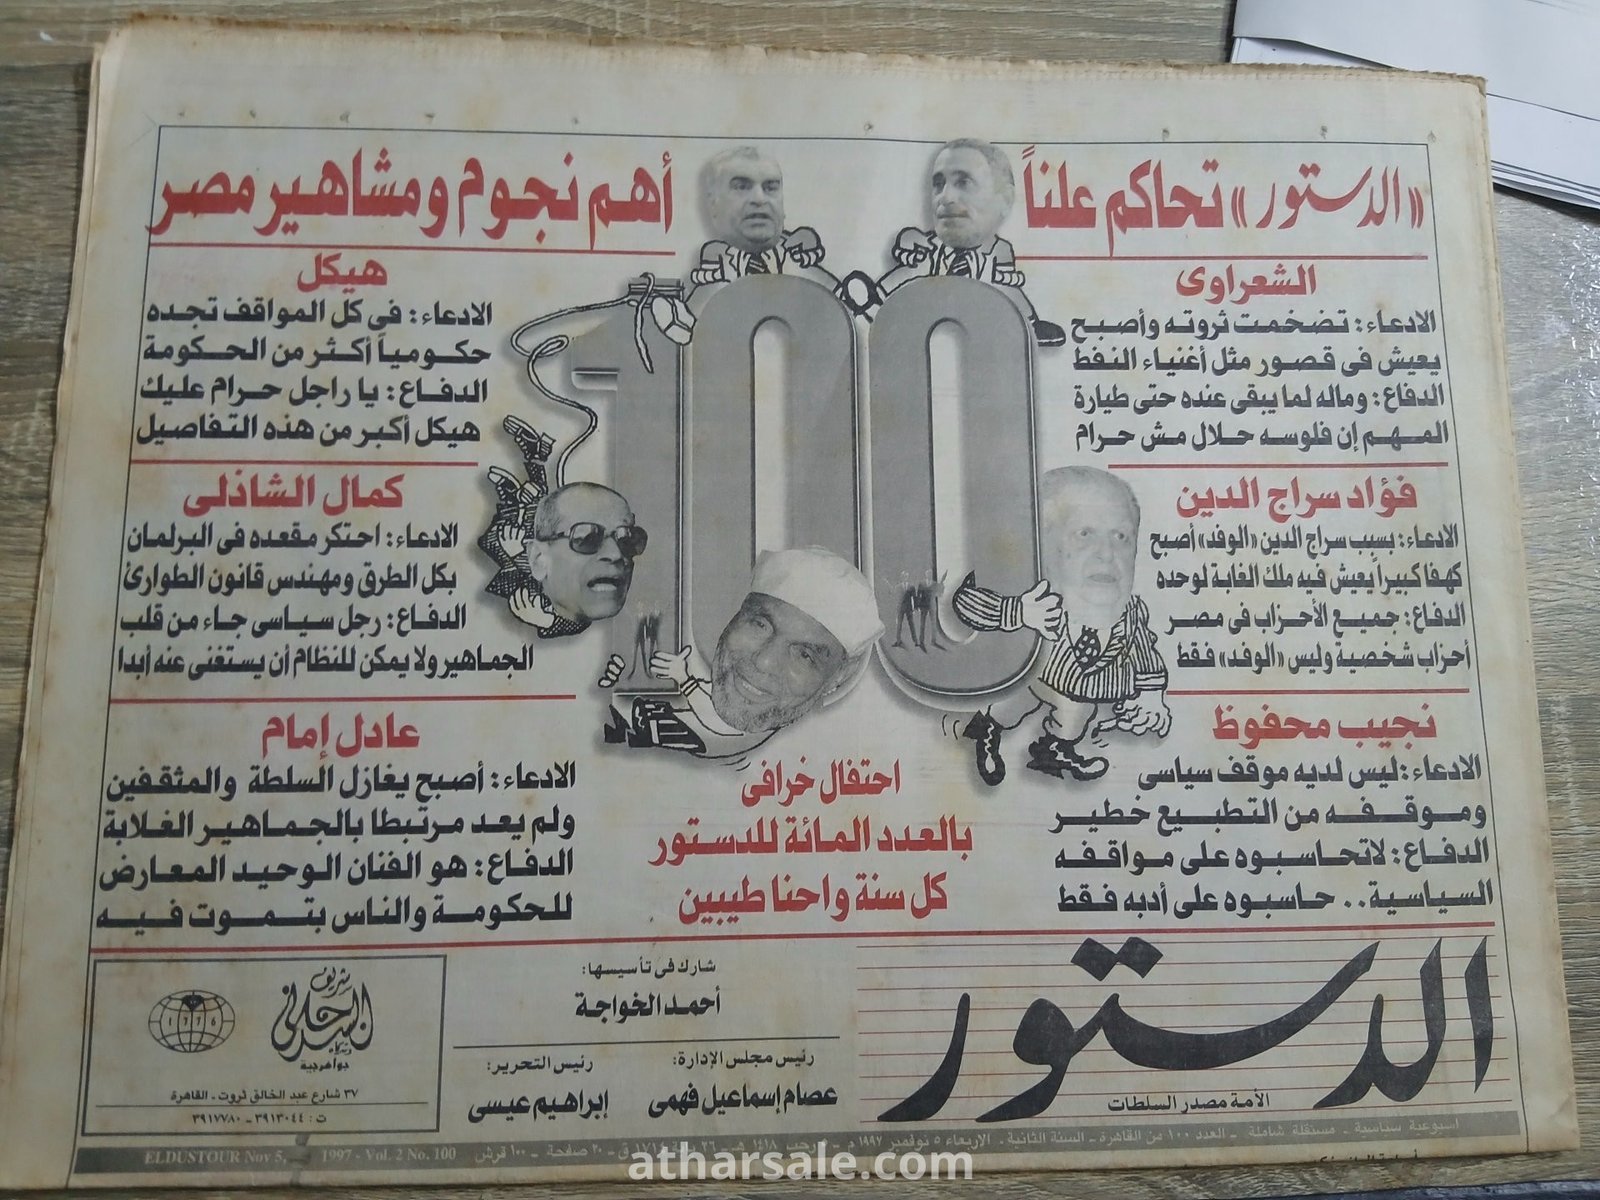 «الدستور» تحاكم علناً
أهم نجوم ومشاهير مصر
الشعراوى
الادعاء: تضخمت ثروته وأصبح
يعيش فى قصور مثل أغنياء النفط
الدفاع: وماله لما يبقى عنده حتى طيارة
المهم إن فلوسه حلال مش حرام
فؤاد سراج الدين
الادعاء: بسبب سراج الدين «الوفد» أصبح
كهفا كبيراً يعيش فيه ملك الغابة لوحده
الدفاع: جميع الأحزاب فى مصر
أحزاب شخصية وليس «الوفد» فقط
نجيب محفوظ
الادعاء: ليس لديه موقف سياسى
وموقفه من التطبيع خطير
الدفاع: لاتحاسبوه على مواقفه
السياسية.. حاسبوه على أدبه فقط
هيكل
الادعاء: فى كل المواقف تجده
حكومياً أكثر من الحكومة
الدفاع: يا راجل حرام عليك
هيكل أكبر من هذه التفاصيل
كمال الشاذلى
الادعاء: احتكر مقعده فى البرلمان
بكل الطرق ومهندس قانون الطوارئ
الدفاع: رجل سياسى جاء من قلب
الجماهير ولا يمكن للنظام أن يستغنى عنه أبدا
عادل إمام
الادعاء: أصبح يغازل السلطة والمثقفين
ولم يعد مرتبطا بالجماهير الغلابة
الدفاع: هو الفنان الوحيد المعارض
للحكومة والناس بتموت فيه
100
احتفال خرافى
بالعدد المائة للدستور
كل سنة واحنا طيبين
الدستور
الأمة مصدر السلطات
شارك فى تأسيسها:
أحمد الخواجة
رئيس مجلس الإدارة:
عصام إسماعيل فهمى
رئيس التحرير:
إبراهيم عيسى
شريف
السرجانى
1976
٣٧ شارع عبد الخالق ثروت - القاهرة
ت: ٣٩١٣٠٤٤ - ٣٩١٧٧٨٠
أسبوعية سياسية - مستقلة شاملة - العدد ١٠٠ من القاهرة - السنة الثانية - الأربعاء ٥ نوفمبر ١٩٩٧ م - رجب ١٤١٨ هـ - ٢٦ ١٧١٤ ق - ٢٠ صفحة - ١٠٠ قرش
ELDUSTOUR Nov 5, 1997 - Vol. 2 No. 100
atharsale.com